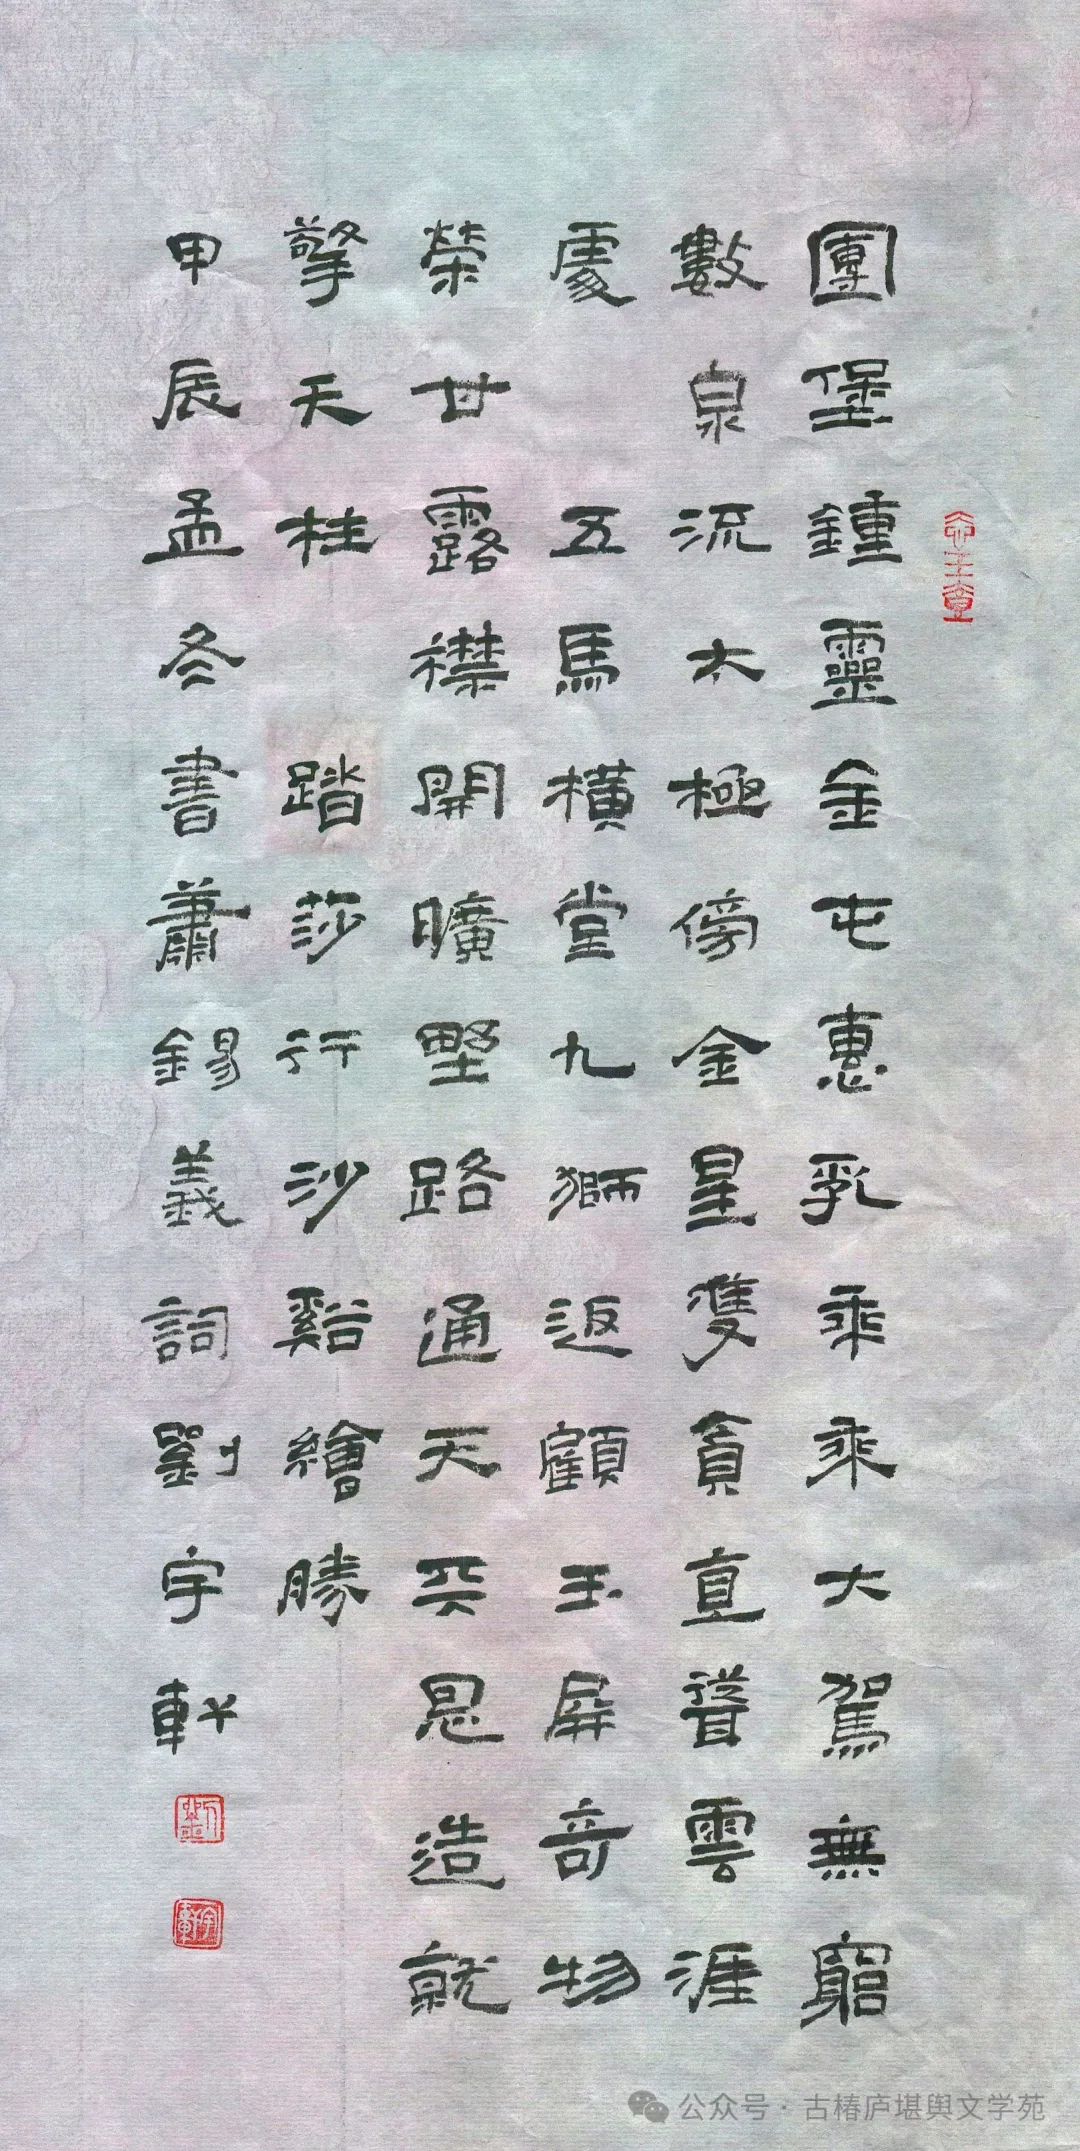 團堡鍾靈金屯惠乳乘乘大駕無窮
數泉流太極傍金星雙貪直聳雲涯
處 五馬橫堂九獅返顧玉屏奇物
榮廿露襟開曠野路通天 恩造就
擎天柱 踏莎行沙谿繪勝
甲辰孟冬書蕭錫義詞劉宇軒
劉
宇軒
公众号·古椿庐堪舆文学苑